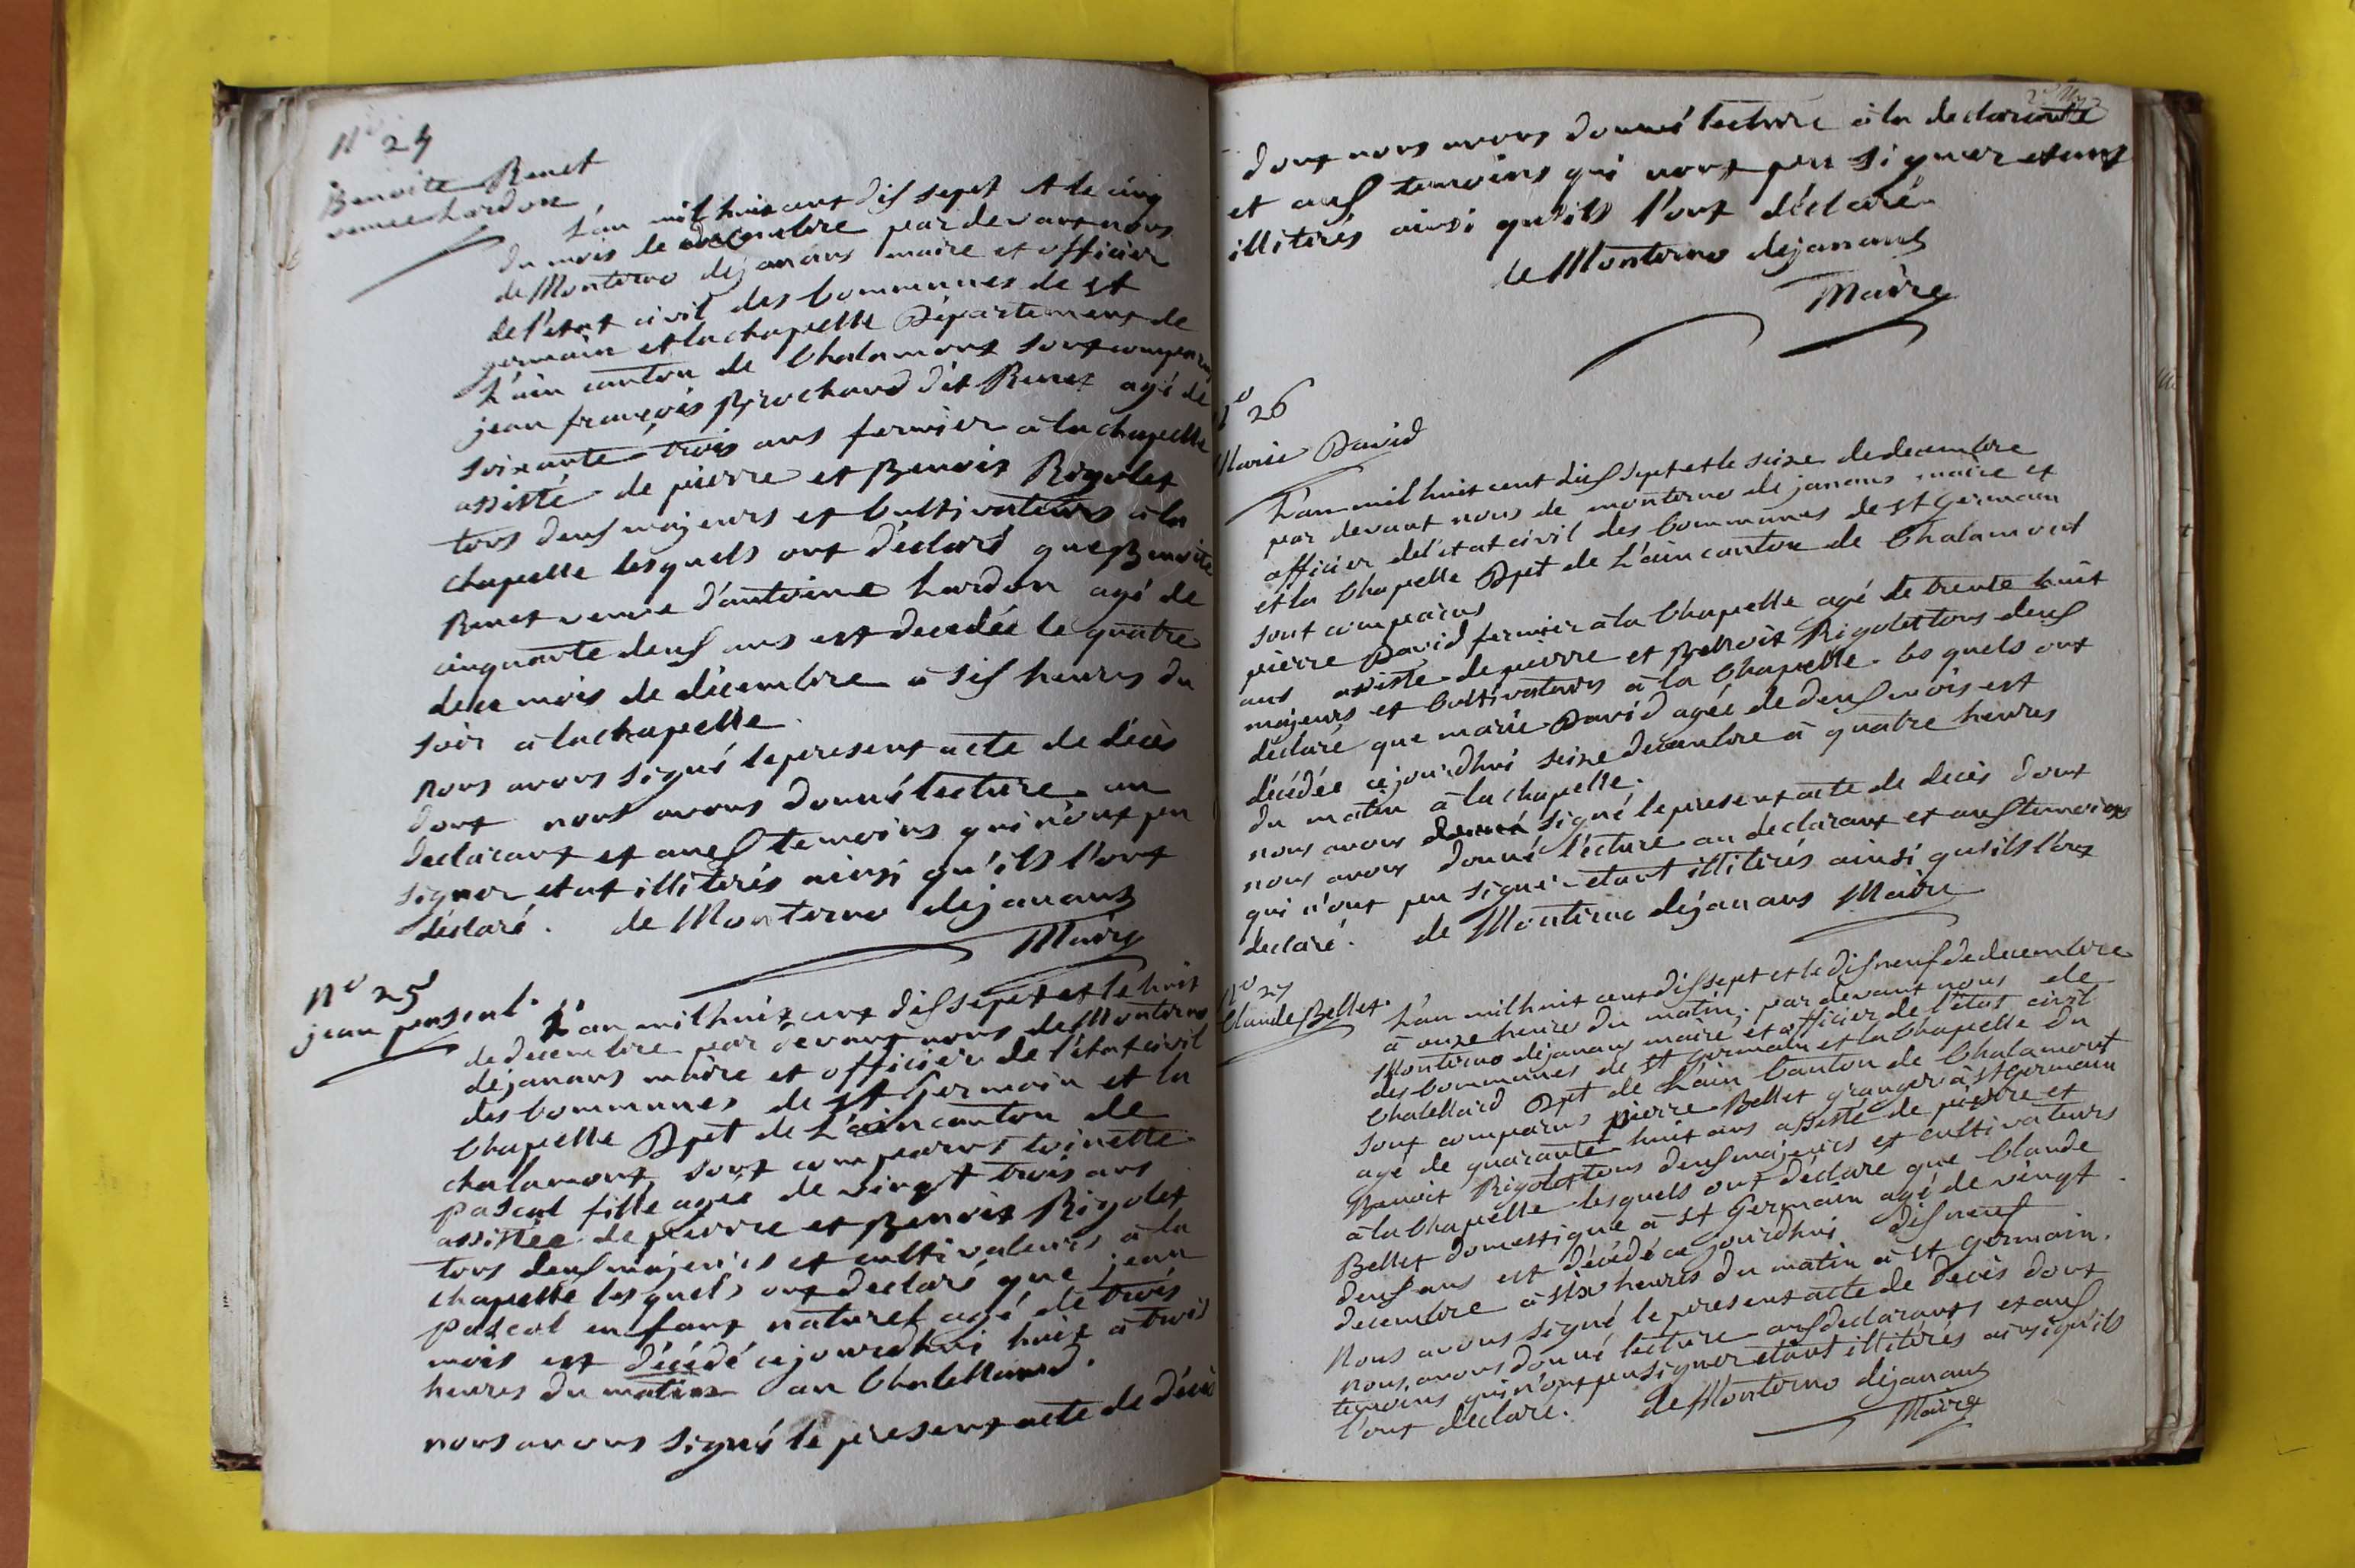 N° 24
Benoite Renet
veuve hardon
L'an mil huit cent dif sept et le cinq
du mois de decembre par devant nous
de Monterno dejanans maire et officier
de l'etat civil des Communes de st
germain et la chapelle Département de
L'ain canton de Chalamont sont comparus
jean françois Brochard dit Renet agé de
soixante trois ans fermier à la chapelle
assisté de pierre et Benoit Rigolet
tous deuf majeurs et Cultivateurs à la
chapelle lesquels ont déclaré que Benoite
Renet veuve d'antoine hardon agé de
cinquante deuf ans est decedée le quatre
de ce mois de décembre à sif heures du
soir à la chapelle.
nous avons signé le present acte de décès
dont nous avons donné lecture au
declarant et auf temoins qui n'ont pu
signer etant illitirés ainsi qu'ils l'ont
déclaré. de Monterno dejanans
Maire
N° 25
jean pascal.
L'an mil huit cent dif sept et le huit
de decembre par devant nous de Monterno
dejanans maire et officier de l'état civil
des Communes de st Germain et la
Chapelle Dpt de L'ain canton de
chalamont sont comparus toinette
pascal fille agée de vingt trois ans
assistée de pierre et Benoit Rigolet
tous deuf majeurs et cultivateurs à la
chapelle lesquels ont declaré que jean
pascal enfant naturel agé de trois
mois est décédé cejourdhui huit à trois
heures du matin au Chatellard.
nous avons signé le present acte de décès
dont nous avons donné lecture à la declarante
et auf temoins qui nont pu signer etant
illitirés ainsi qu'ils l'ont déclaré
de Monterno dejanans
Maire
N° 26
Marie David
L'an mil huit cent dif sept et le seize de decembre
par devant nous de monterno dejanans maire et
officier de l'etat civil des Communes de st Germain
et la Chapelle Dpt de L'ain canton de Chalamont
sont comparus
pierre David fermier à la Chapelle agé de trente huit
ans assisté de pierre et Benoit Rigolet tous deuf
majeurs et Cultivateurs à la Chapelle. lesquels ont
déclaré que marie David agée de deuf mois est
décédée cejourdhui seize decembre à quatre heures
du matin à la chapelle.
nous avons donné signé le present acte de decès dont
nous avons donné lecture au declarant et auf temoins
qui n'ont pu signer etant illitirés ainsi qu'ils l'ont
declaré. de Monterno dejanans Maire
N° 27
Claude Bellet.
L'an mil huit cent dif sept et le dif neuf de decembre
à onze heures du matin. par devant nous de
Monterno dejanans maire et officier de l'état civil
des Communes de st Germain et la Chapelle du
Chatellard Dpt de L'ain Canton de Chalamont
sont comparus pierre Bellet granger à st Germain
agé de quarante huit ans assisté de pierre et
Benoit Rigolet tous deuf majeurs et cultivateurs
à la Chapelle lesquels ont déclaré que Claude
Bellet domestique à st Germain agé de vingt
deuf ans est décédé ce jourdhui dif neuf
decembre à six heures du matin à st germain.
Nous avons signé le present acte de decès dont
nous avons donné lecture auf declarants et auf
temoins qui n'ont pu signer etant illitirés ainsi qu'ils
l'ont declaré. de Monterno dejanans
Maire